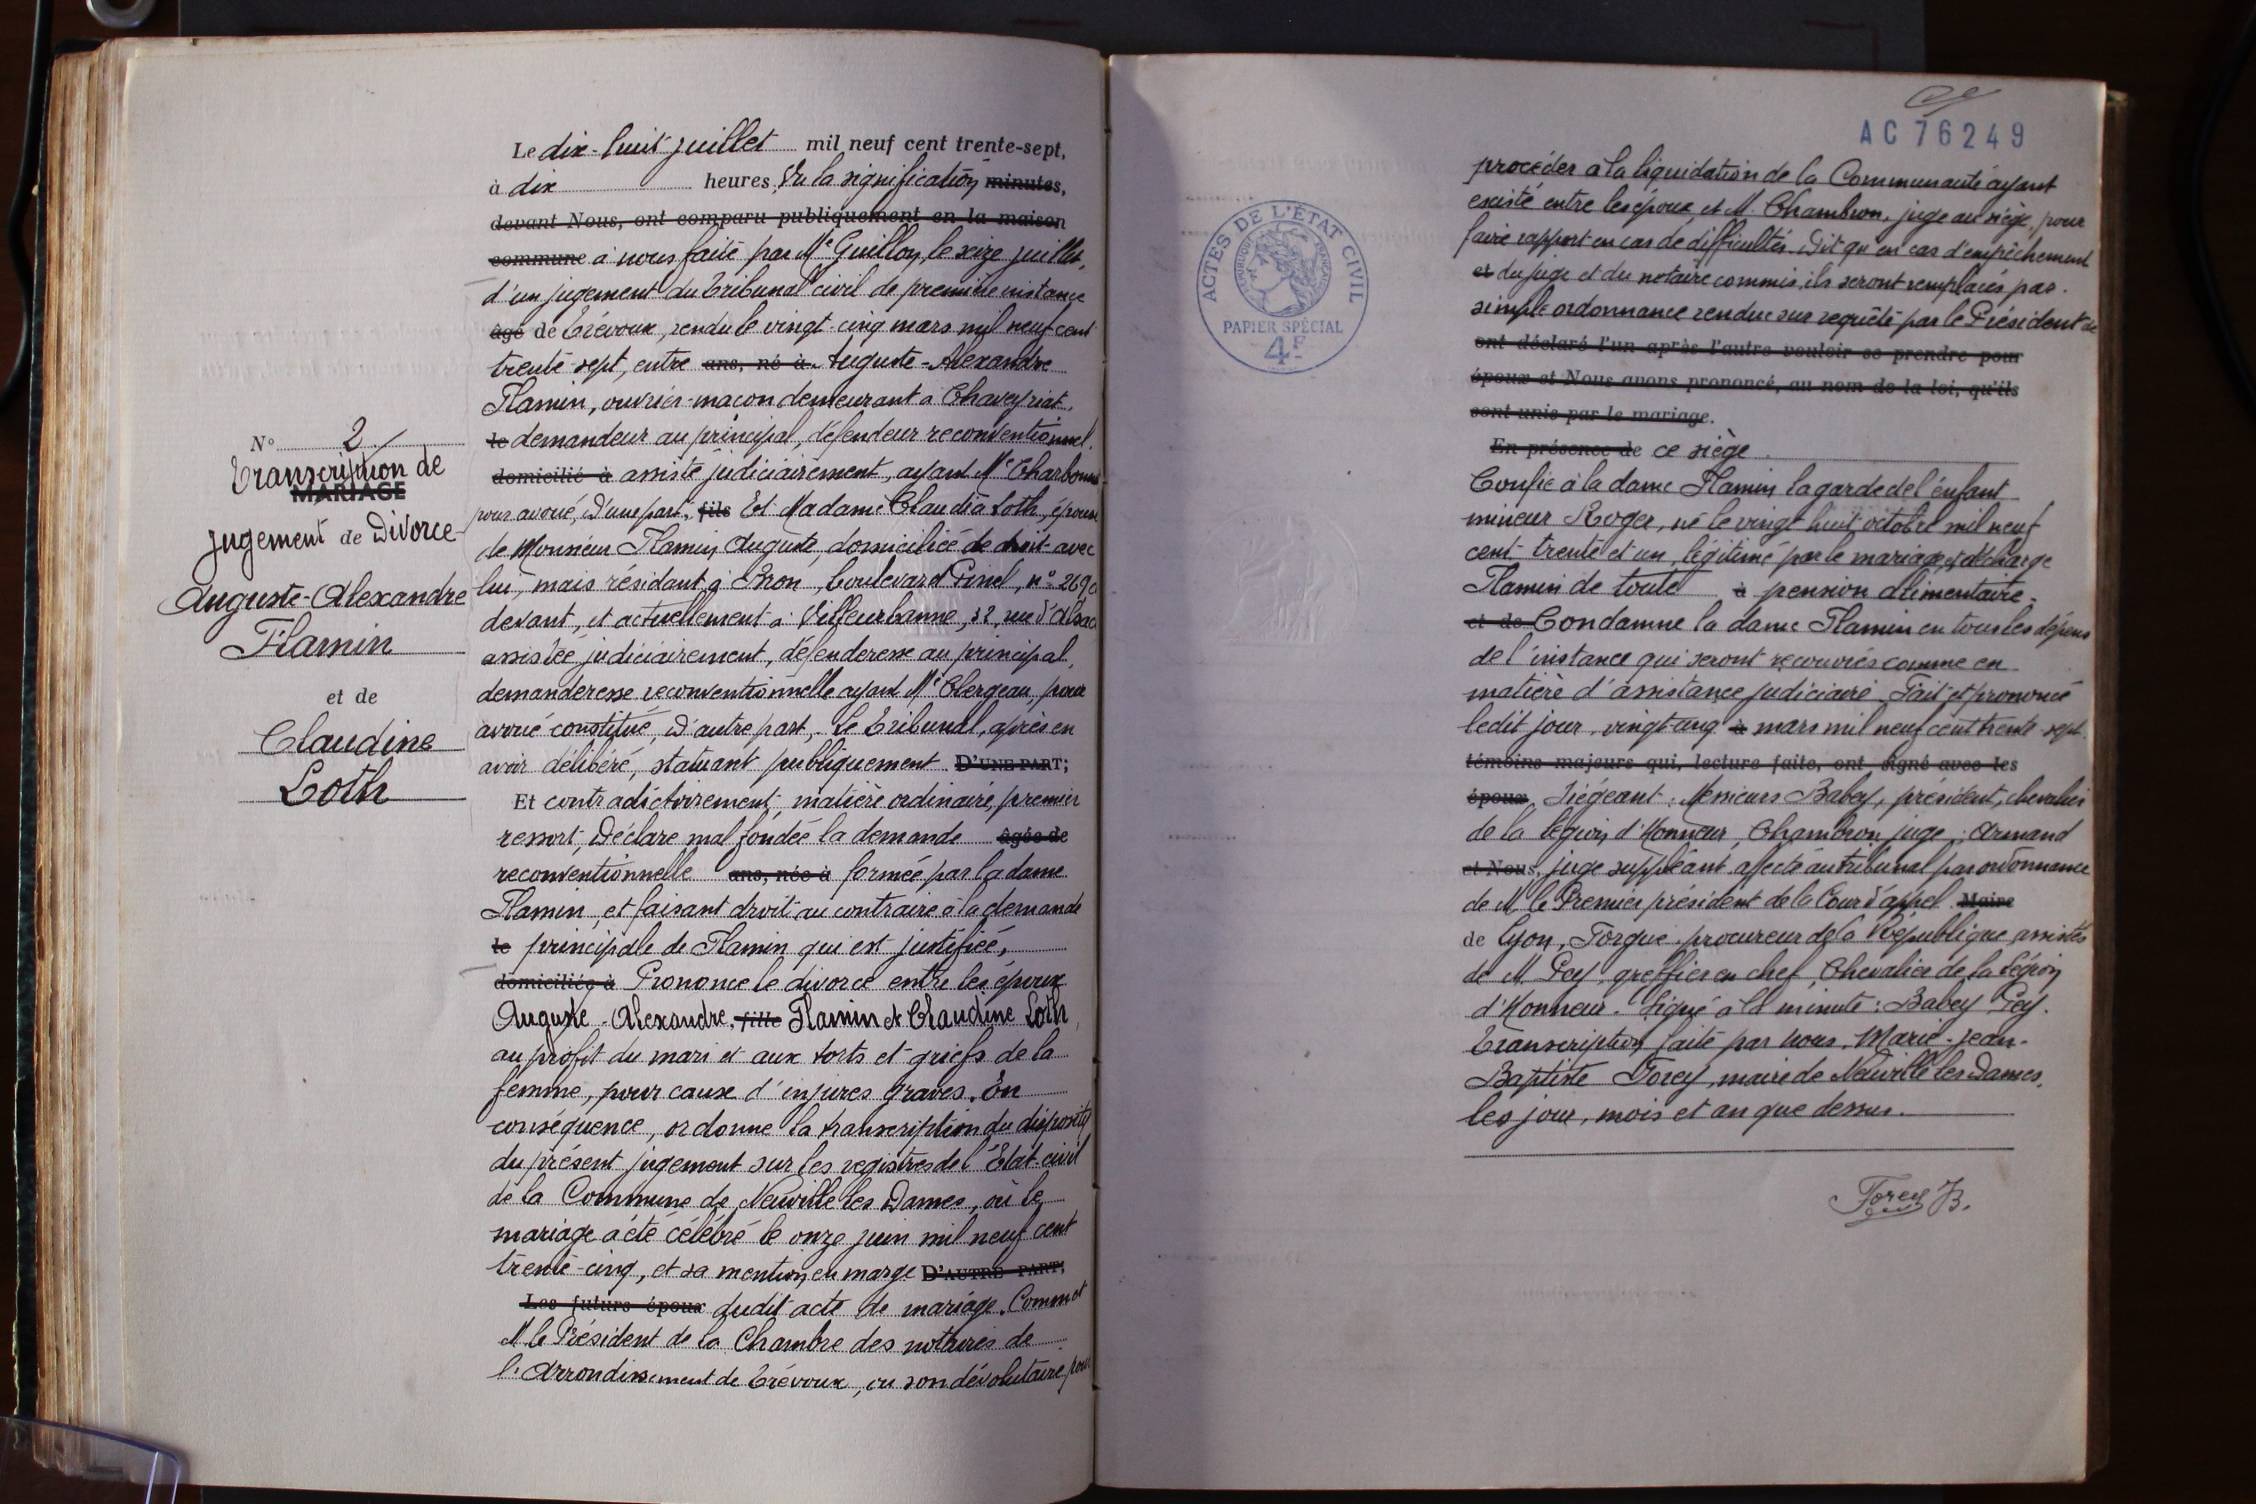 N° 2
Transcription de
MARIAGE
jugement de Divorce
Auguste-Alexandre
Flamin
et de
Claudine
Loth
Le dix-huit juillet mil neuf cent trente-sept,
à dix heures, Vu la signification minutes,
devant Nous, ont comparu publiquement en la maison
commune à nous faite par Me Guillon, le seize juillet,
d'un jugement du Tribunal civil de première instance
âgé de Trévoux, rendu le vingt-cinq mars mil neuf cent
trente-sept, entre ans, né à Auguste-Alexandre
Flamin, ouvrier-maçon demeurant à Chaveyriat,
le demandeur au principal, défendeur reconventionnel,
domicilié à assisté judiciairement, ayant Me
pour avoué, d'une part; fils Et Madame Claudia Loth, épouse
de Monsieur Flamin Auguste, domiciliée de droit avec
lui, mais résidant à Bron, boulevard Pinel, n°
devant, et actuellement à Villeurbanne, 32, rue d'Alsace
assistée judiciairement, défenderesse au principal,
demanderesse reconventionnelle ayant Me Clergeau, pour
avoué constitué, d'autre part, - Le Tribunal, après en
avoir délibéré, statuant publiquement D'UNE PART;
Et contradictoirement, matière ordinaire, premier
ressort, Déclare mal fondée la demande âgée de
reconventionnelle ans, née à formée par la dame
Flamin, et faisant droit au contraire à la demande
le principale de Flamin qui est justifiée,
domiciliée à Prononce le divorce entre les époux
Auguste-Alexandre, fille Flamin et Claudine Loth,
au profit du mari et aux torts et griefs de la
femme, pour cause d'injures graves. En
conséquence, ordonne la transcription du dispositif
du présent jugement sur les registres de l'Etat-civil
de la Commune de Neuville les Dames, où le
mariage a été célébré le onze juin mil neuf cent
trente-cinq, et sa mention en marge D'AUTRE PART;
Les futurs époux dudit acte de mariage. Commet
M le Président de la Chambre des notaires de
l'Arrondissement de Trévoux, ou son dévolutaire, pour
AC 76249
ACTES DE L'ÉTAT CIVIL
RÉPUBLIQUE FRANÇAISE
PAPIER SPÉCIAL
4F
procéder à la liquidation de la Communauté ayant
existé entre les époux et M. Chambron, juge au siège, pour
faire rapport en cas de difficultés. Dit qu'en cas d'empêchement
et du juge et du notaire commis, ils seront remplacés par
simple ordonnance rendue sur requête par le Président de
ont déclaré l'un après l'autre vouloir se prendre pour
époux et Nous avons prononcé, au nom de la loi, qu'ils
sont unis par le mariage.
En présence de ce siège
Confie à la dame Flamin la garde de l'enfant
mineur Roger, né le vingt huit octobre mil neuf
cent trente et un, légitimé par le mariage, et décharge
Flamin de toute à pension alimentaire.
et de Condamne la dame Flamin en tous les dépens
de l'instance qui seront recouvrés comme en
matière d'assistance judiciaire. Fait et prononcé
ledit jour, vingt-cinq à mars mil neuf cent trente-sept.
témoins majeurs qui, lecture faite, ont signé avec les
époux Siégeant: Messieurs Babey, président, chevalier
de la légion d'Honneur, Chambron, juge; Armand
et Nous, juge suppléant affecté au tribunal par ordonnance
de M. le Premier président de la Cour d'appel Maire
de Lyon, Forgue procureur de la République, assistés
de M. Pey, greffier en chef, Chevalier de la Légion
d'Honneur. Signé à la minute: Babey Pey.
Transcription faite par nous, Marie-Jean-
Baptiste Forey, maire de Neuville les Dames,
les jour, mois et an que dessus.
Forey JB.